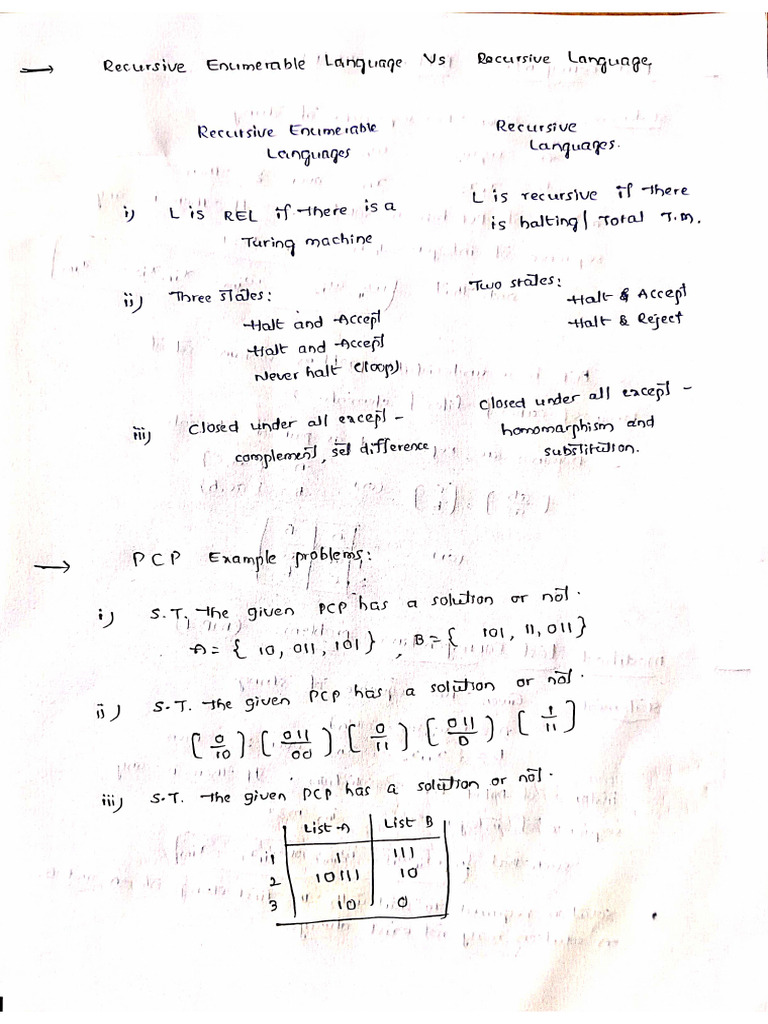 → Recursive Enumerable Language Vs Recursive Language
Recursive Enumerable Languages
Recursive Languages.
i) L is REL if there is a Turing machine
L is recursive if there is halting/ Total T.M.
ii) Three states:
Halt and Accept
Halt and Accept
Never halt (loop)
Two states:
Halt & Accept
Halt & Reject
iii) Closed under all except -
complement, set difference
Closed under all except -
homomarphism and
substitution.
→ PCP Example problems:
i) S.T. the given PCP has a solution or not.
A = { 10, 011, 101} , B = { 101, 11, 011}
ii) S.T. the given PCP has a solution or not.
[0/10] [011/00] [0/11] [011/0] [1/11]
iii) S.T. the given PCP has a solution or not.
List A List B
1 1 111
2 10111 10
3 10 0